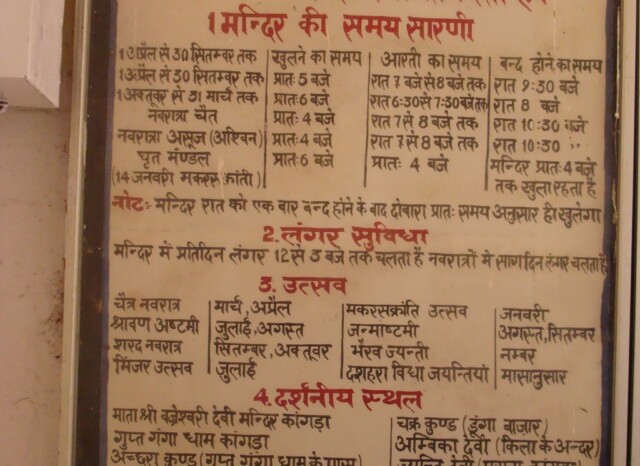 1 मन्दिर की समय सारणी
1 अप्रैल से 30 सितम्बर तक खुलने का समय आरती का समय बन्द होने का समय
1 अप्रैल से 30 सितम्बर तक प्रातः 5 बजे रात 7 बजे से 8 बजे तक रात 9:30 बजे
1 अक्तूबर से 31 मार्च तक प्रातः 6 बजे रात 6:30 से 7:30 बजे तक रात 8 बजे
नवरात्रा चैत प्रातः 4 बजे रात 7 से 8 बजे तक रात 10:30 बजे
नवरात्रा असूज (अश्विन) प्रातः 4 बजे रात 7 से 8 बजे तक रात 10:30 "
घृत मण्डल प्रातः 6 बजे प्रातः 4 बजे मन्दिर प्रातः 4 बजे
(14 जनवरी मकरसक्रांती) तक खुला रहता है
नोटः मन्दिर रात को एक बार बन्द होने के बाद दोबारा प्रातः समय अनुसार ही खुलेगा
2. लंगर सुविधा
मन्दिर में प्रतिदिन लंगर 12 से 3 बजे तक चलता है नवरात्रों मे सारा दिन लंगर चलता है
3. उत्सव
चैत्र नवरात्र मार्च, अप्रैल मकरसक्रांति उत्सव जनवरी
श्रावण अष्टमी जुलाई, अगस्त जन्माष्टमी अगस्त, सितम्बर
शरद नवरात्र सितम्बर, अक्तूबर भैरव जयन्ती नम्बर
मिंजर उत्सव जुलाई दशहरा विधा जयन्तियां मासानुसार
4. दर्शनीय स्थल
माता श्री बज्रेश्वरी देवी मन्दिर कांगड़ा चक्र कुण्ड (डूंगा बाजार)
गुप्त गंगा धाम कांगड़ा अम्बिका देवी (किला के अन्दर)
अच्छरा कुण्ड (गुप्त गंगा धाम के पास)